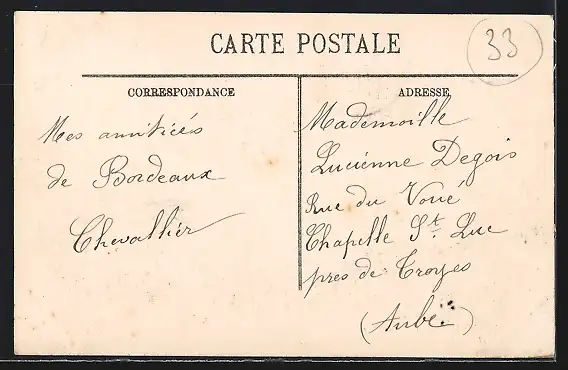 CARTE POSTALE
33
CORRESPONDANCE
ADRESSE
Mes amitiés
de Bordeaux
Chevallier
Mademoille
Lucienne Degois
Rue du Voué
Chapelle St. Luc
pres de Troyes
(Aube)